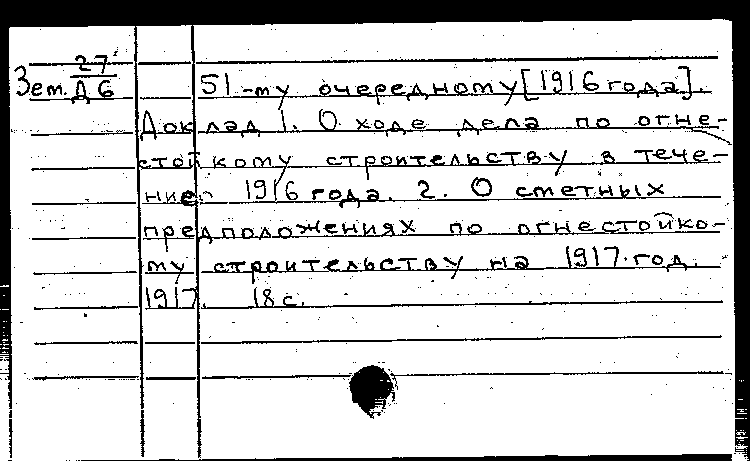 27
Зем. Д 6
51-му очередному [1916 года].
Доклад 1. О ходе дела по огне-
стойкому строительству в тече-
ние 1916 года. 2. О сметных
предположениях по огнестойко-
му строительству на 1917 год.
1917. 18 с.